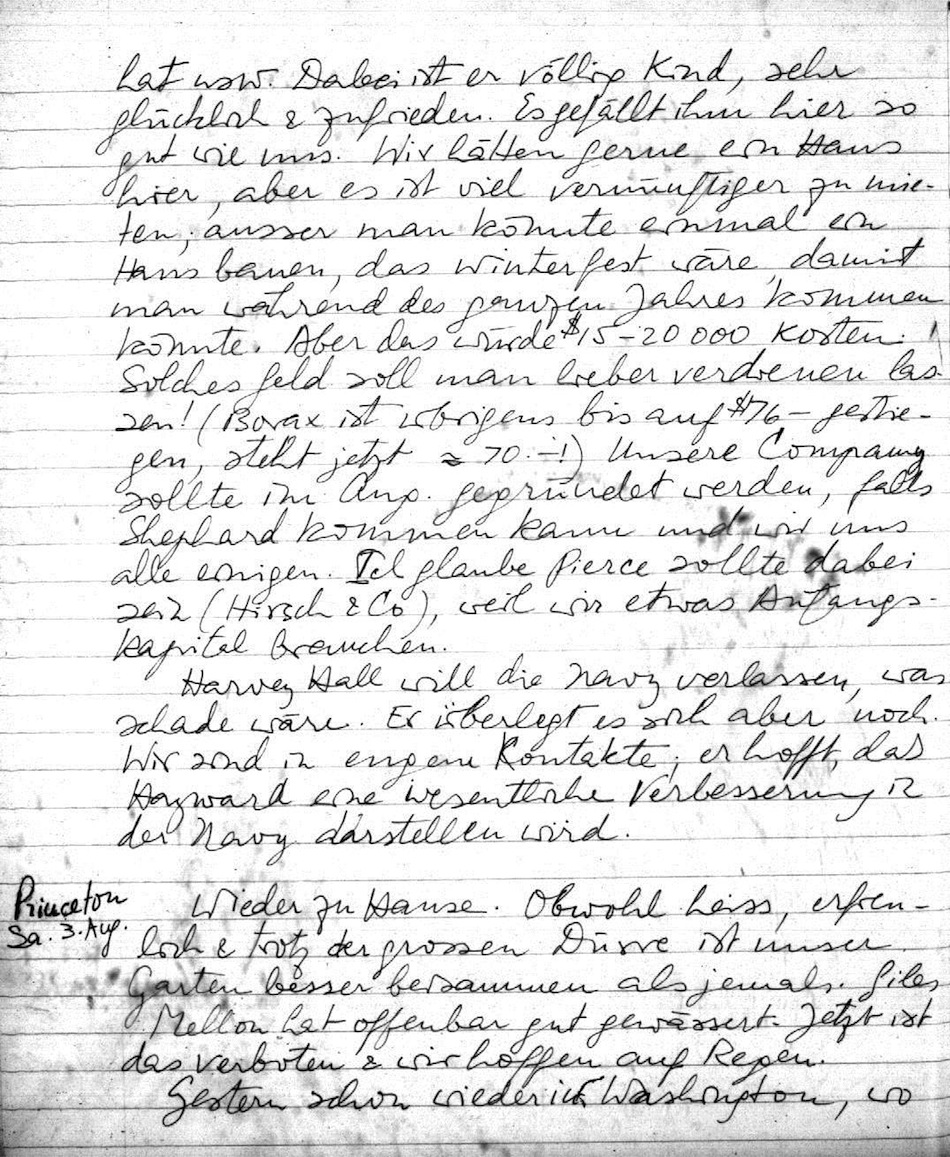 hat usw. Dabei ist er völlig Kind, sehr
glücklich & zufrieden. Es gefällt ihm hier so
gut wie uns. Wir hätten gerne ein Haus
hier, aber es ist viel vernünftiger zu mie-
ten; ausser man könnte einmal ein
Haus bauen, das winterfest wäre, damit
man während des ganzen Jahres kommen
könnte. Aber das würde $15-20 000 kosten.
Solches Geld soll man lieber verdienen las-
sen! (Borax ist übrigens bis auf $76- gestie-
gen, steht jetzt ≈ 70.-!) Unsere Company
sollte im Aug. gegründet werden, falls
Shephard kommen kann und wir uns
alle einigen. Ich glaube Pierce sollte dabei
sein (Hirsch & Co), weil wir etwas Anfangs-
kapital brauchen.
Harvey Hall will die Navy verlassen, was
schade wäre. Er überlegt es sich aber noch.
Wir sind in engem Kontakte; er hofft, dass
Hayward eine wesentliche Verbesserung in
der Navy darstellen wird.
Princeton
Sa. 3. Aug.
Wieder zu Hause. Obwohl heiss, erfreu-
lich & trotz der grossen Dürre ist unser
Garten besser beisammen als jemals. Giles
Mellon hat offenbar gut gewässert. Jetzt ist
das verboten & wir hoffen auf Regen.
Gestern schon wieder in Washington, wo